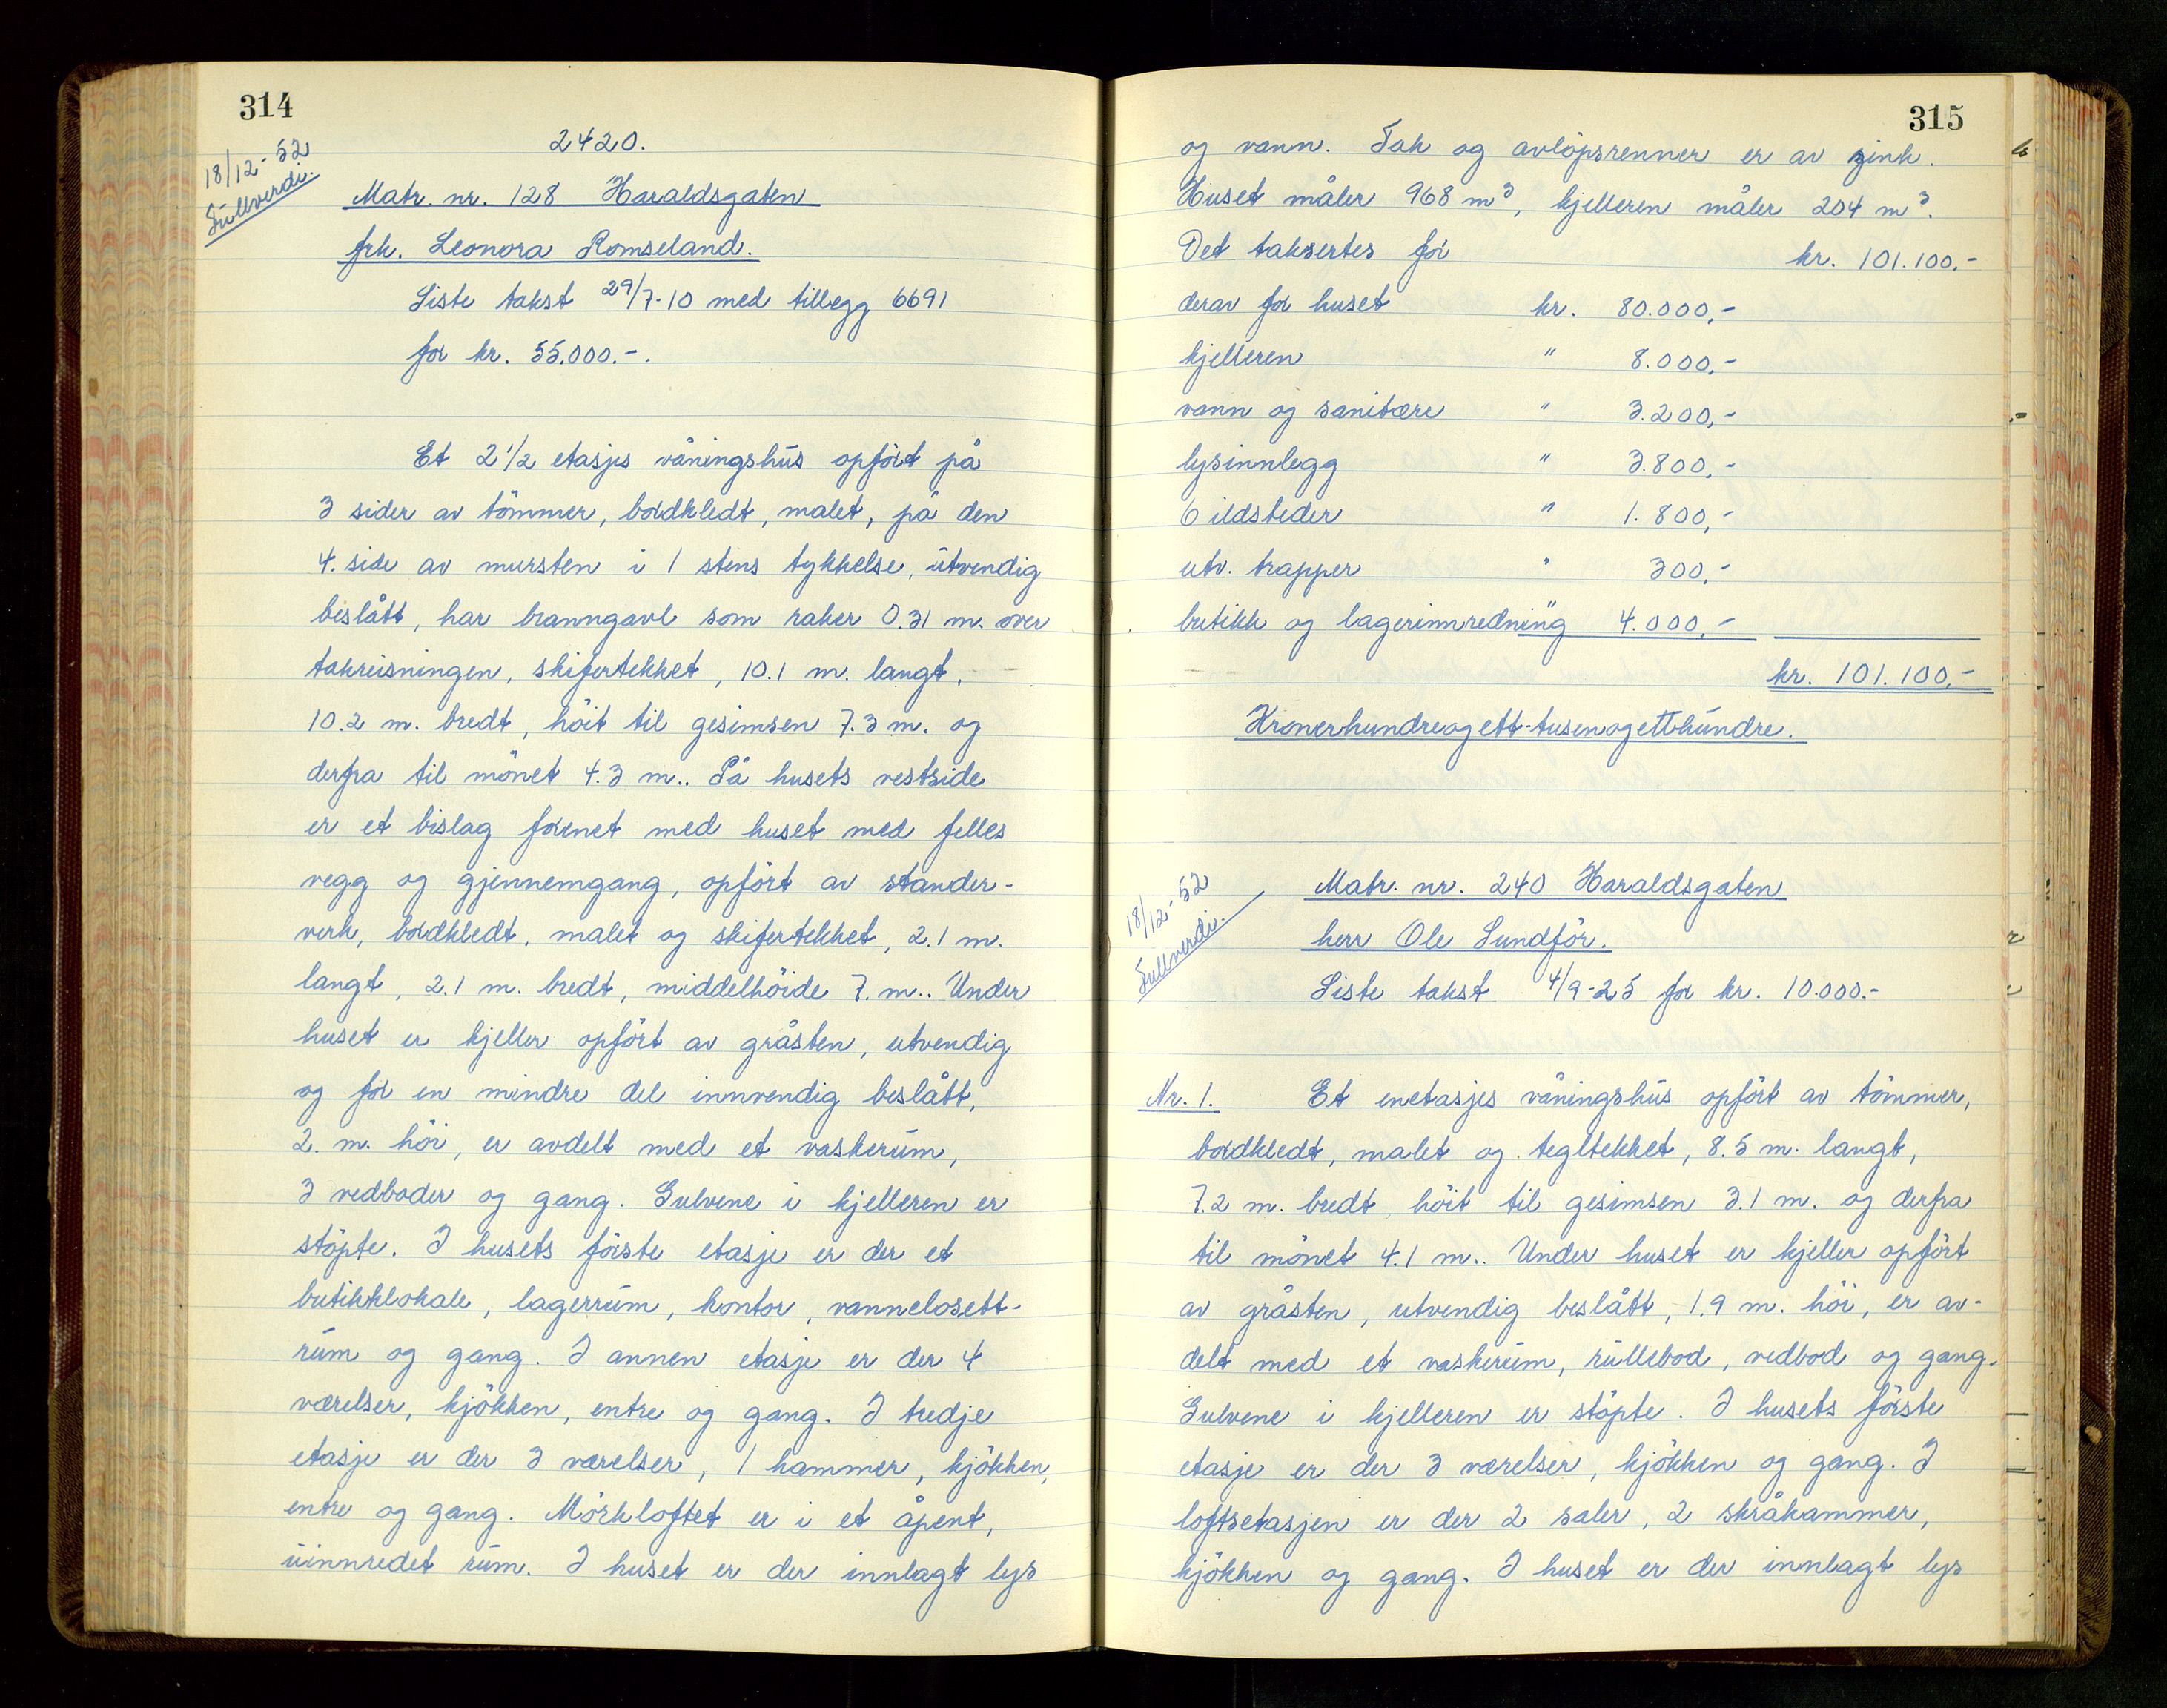 314
18/12-52
Fullverdi.
2420.
Matr. nr. 128 Haraldsgaten
frk. Leonora Romseland.
Siste takst 29/7-10 med tillegg 6691
for kr. 55.000.-.
Et 2 1/2 etasjes våningshus opført på
3 sider av tømmer, bordkledt, malet, på den
4. side av mursten i 1 stens tykkelse, utvendig
beslått, har branngavl som raker 0.31 m. over
takreisningen, skifertekket, 10.1 m. langt,
10.2 m. bredt, höit til gesimsen 7.3 m. og
derfra til mönet 4.3 m.. På husets vestside
er et bislag forenet med huset med felles
vegg og gjennemgang, opfört av stander-
verk, bordkledt, malet og skifertekket, 2.1 m.
langt, 2.1 m. bredt, middelhöide 7. m.. Under
huset er kjeller opfört av gråsten, utvendig
og for en mindre del innvendig beslått,
2. m. höi, er avdelt med et vaskerum,
3 vedboder og gang. Gulvene i kjelleren er
stöpte. I husets förste etasje er der et
butikklokale, lagerrum, kontor, vannclosett-
rum og gang. I annen etasje er der 4
værelser, kjökken, entre og gang. I tredje
etasje er der 3 værelser, 1 kammer, kjökken,
entre og gang. Mörkloftet er i et åpent,
uinnredet rum. I huset er der innlagt lys
315
og vann. Tak og avlöpsrenner er av zink.
Huset måler 968 m³, kjelleren måler 204 m³.
Det taksertes for kr. 101.100.-
derav for huset kr. 80.000,-
kjelleren " 8.000,-
vann og sanitære " 3.200,-
lysinnlegg " 3.800,-
6 ildsteder " 1.800,-
utv. trapper " 300,-
butikk og lagerinnredning " 4.000,-
kr. 101.100,-
Kronerhundreogett-tusenogetthundre.
18/12-52
Fullverdi.
Matr. nr. 240 Haraldsgaten
herr Ole Sundför.
Siste takst 4/9-25 for kr. 10.000.-
Nr. 1. Et enetasjes våningshus opfört av tömmer,
bordkledt, malet og tegltekket, 8.5 m. langt,
7.2 m. bredt, höit til gesimsen 3.1 m. og derfra
til mönet 4.1 m.. Under huset er kjeller opfört
av gråsten, utvendig beslått, 1.9 m. höi, er av-
delt med et vaskerum, rullebod, vedbod og gang.
Gulvene i kjelleren er stöpte. I husets förste
etasje er der 3 værelser, kjökken og gang. I
loftsetasjen er der 2 saler, 2 skråkammer,
kjökken og gang. I huset er der innlagt lys